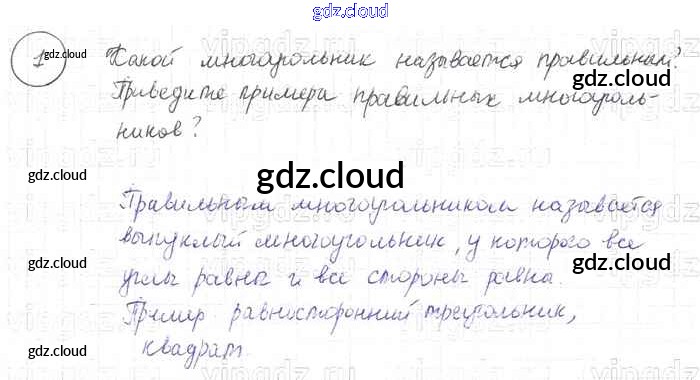 gdz.cloud
1 gdz.cloud Какой многоугольник называется правильным?
gdz.cloud
Приведите примера правильных многоуголь-
ников?
gdz.cloud
gdz.cloud
gdz.cloud
Правильным многоугольником называется
выпуклый многоугольник, у которого все
gdz.cloud
gdz.cloud
углы равны и все стороны равна.
Пример равносторонний треугольник,
квадрат.
gdz.cloud